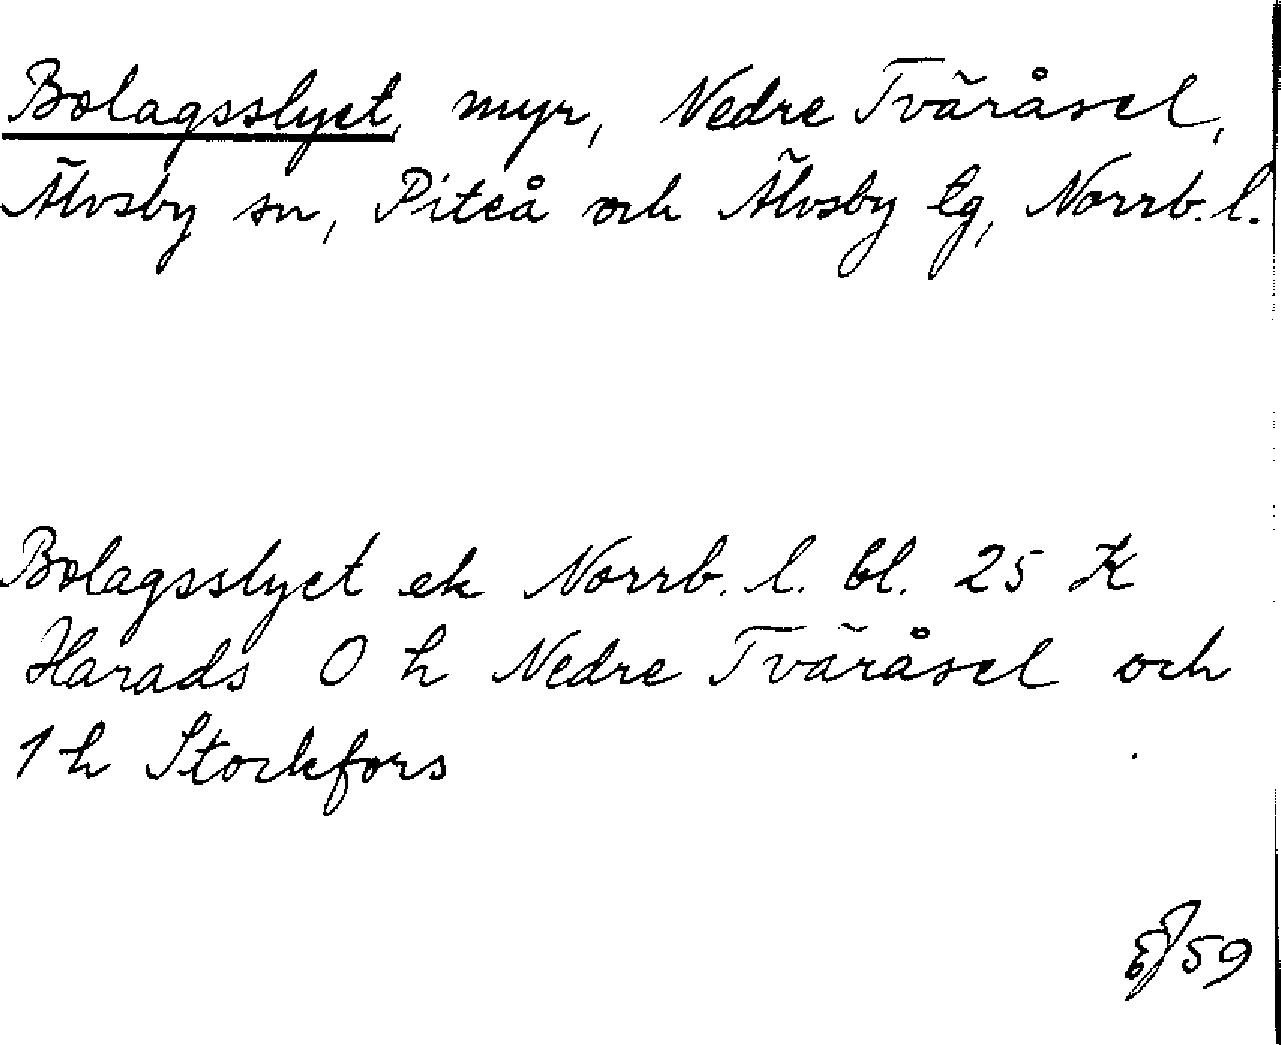 Bolagsslyet, myr, Nedre Tväråsel,
Älvsby sn, Piteå och Älvsby tg, Norrb. l.
Bolagsslyet ek Norrb. l. bl. 25 K
Harads 0 h Nedre Tväråsel och
1 h Storkfors
59